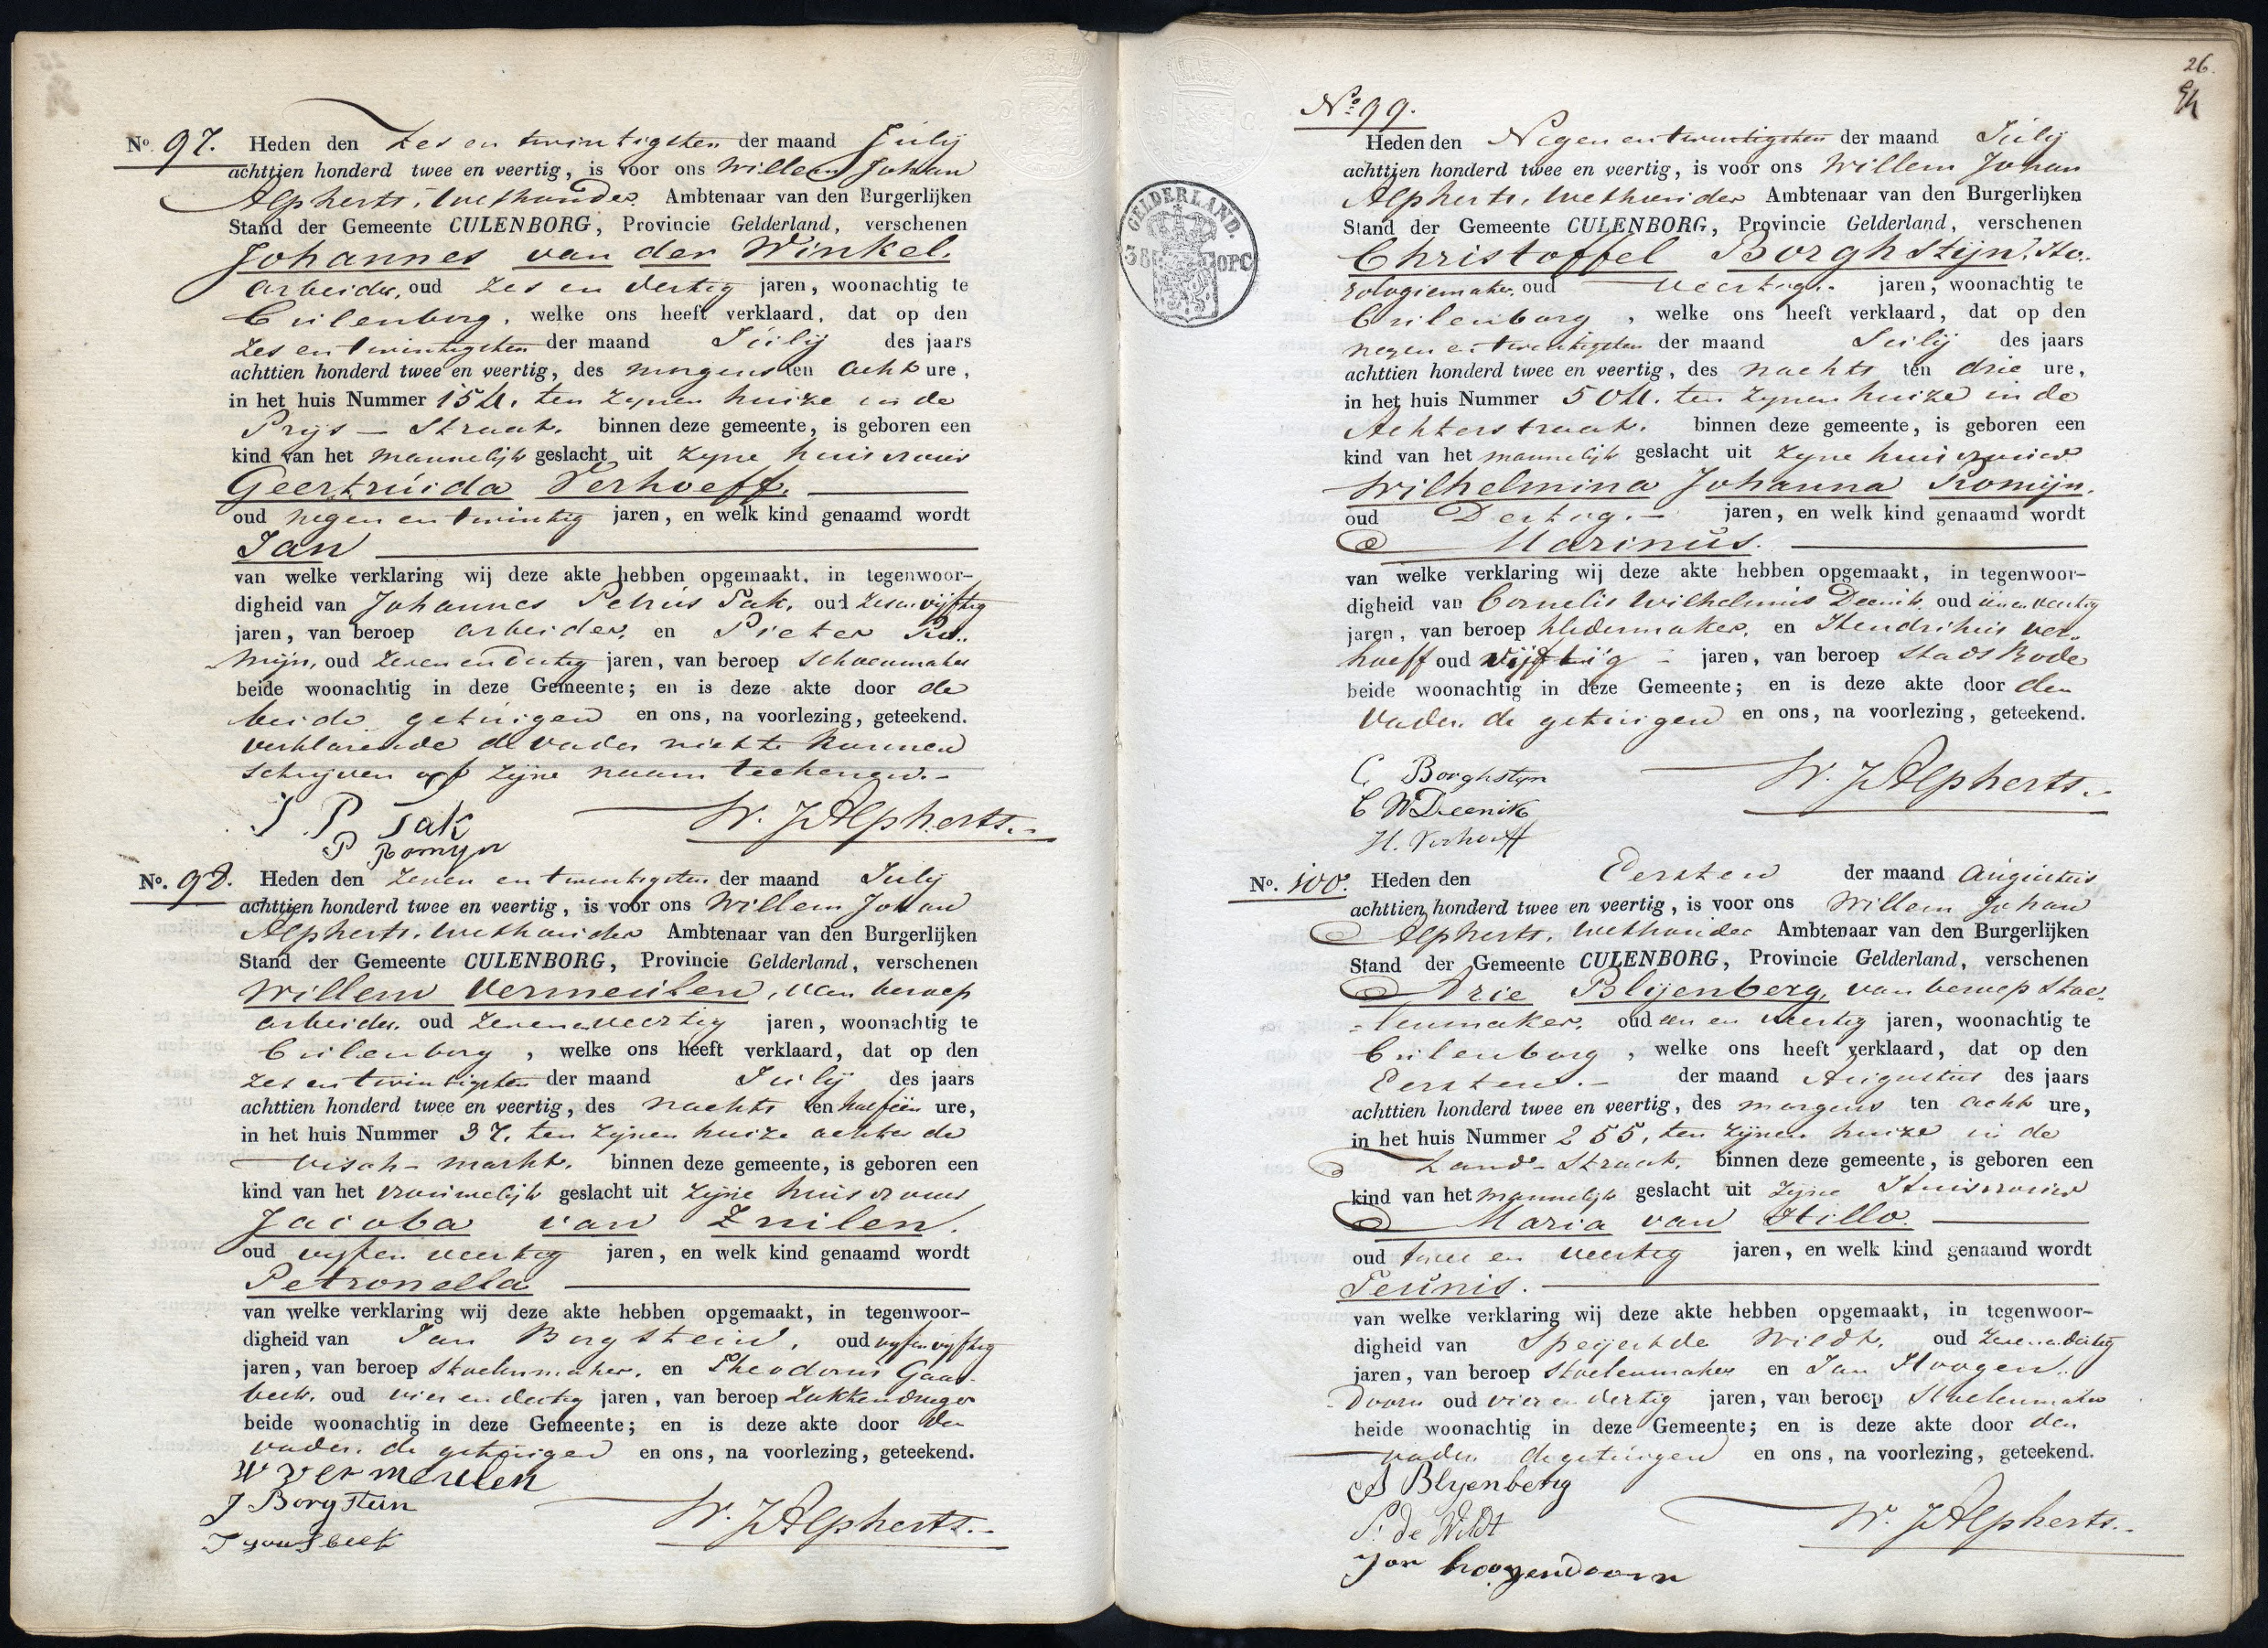 No. 97. Heden den Zes en twintigsten der maand Julij
achttien honderd twee en veertig, is voor ons Willem Johan
Alpherts, Wethouder Ambtenaar van den Burgerlijken
Stand der Gemeente CULENBORG, Provincie Gelderland, verschenen
Johannes van der Winkel,
arbeider, oud Zes en dertig jaren, woonachtig te
Cuilenborg, welke ons heeft verklaard, dat op den
Zes en twintigsten der maand Julij des jaars
achttien honderd twee en veertig, des morgens ten acht ure,
in het huis Nummer 154, ten zynen huize in de
Prijs-Straat, binnen deze gemeente, is geboren een
kind van het mannelijk geslacht uit zyne huisvrouw
Geertruida Verhoeff,
oud negen en twintig jaren, en welk kind genaamd wordt
Jan
van welke verklaring wij deze akte hebben opgemaakt, in tegenwoor-
digheid van Johannes Petrus Tak, oud Zes en vijftig
jaren, van beroep arbeider, en Pieter Ro-
mijn, oud Zeven en dertig jaren, van beroep Schoenmaker
beide woonachtig in deze Gemeente; en is deze akte door de
beide getuigen en ons, na voorlezing, geteekend.
verklarende de vader niet te kunnen
schrijven of zijne naam teekenen.-
J. P Tak W. J Alpherts.
P Romyn
No. 98. Heden den Zeven en twintigsten der maand Julij
achttien honderd twee en veertig, is voor ons Willem Johan
Alpherts, Wethouder Ambtenaar van den Burgerlijken
Stand der Gemeente CULENBORG, Provincie Gelderland, verschenen
Willem Vermeulen, van beroep
arbeider, oud Zeven en veertig jaren, woonachtig te
Cuilenborg, welke ons heeft verklaard, dat op den
Zes en twintigsten der maand Julij des jaars
achttien honderd twee en veertig, des nachts ten half één ure,
in het huis Nummer 37, ten zijnen huize achter de
Visch-markt, binnen deze gemeente, is geboren een
kind van het vrouwelijk geslacht uit zijne huisvrouw
Jacoba van Zuilen,
oud vyf en veertig jaren, en welk kind genaamd wordt
Petronella
van welke verklaring wij deze akte hebben opgemaakt, in tegenwoor-
digheid van Jan Borgstein, oud vyf en vyftig
jaren, van beroep Stoelenmaker, en Theodorus Gaas-
beek, oud vier en dertig jaren, van beroep Zakkendrager
beide woonachtig in deze Gemeente; en is deze akte door den
vader, de getuigen en ons, na voorlezing, geteekend.
W Vermeulen
J Borgstein W. J Alpherts.-
T Gaasbeek
26.
No. 99.
Heden den Negen en twintigsten der maand Julij
achttien honderd twee en veertig, is voor ons Willem Johan
Alpherts, Wethouder Ambtenaar van den Burgerlijken
Stand der Gemeente CULENBORG, Provincie Gelderland, verschenen
Christoffel Borghstijn, Ho-
rologiemaker, oud veertig jaren, woonachtig te
Cuilenborg, welke ons heeft verklaard, dat op den
negen en twintigsten der maand Julij des jaars
achttien honderd twee en veertig, des nachts ten drie ure,
in het huis Nummer 504, ten zynen huize in de
Achterstraat, binnen deze gemeente, is geboren een
kind van het mannelijk geslacht uit zyne huisvrouw
Wilhelmina Johanna Romijn,
oud Dertig.- jaren, en welk kind genaamd wordt
Marinus.
van welke verklaring wij deze akte hebben opgemaakt, in tegenwoor-
digheid van Cornelis Wilhelmus Deenik, oud één en veertig
jaren, van beroep kledermaker, en Hendrikus Ver-
hoeff oud vijftig jaren, van beroep Stads Bode
beide woonachtig in deze Gemeente; en is deze akte door den
Vader, de getuigen en ons, na voorlezing, geteekend.
C Borghstyn W. J Alpherts.
C W Deenik
H. Verhoeff
GELDERLAND.
38 OPC
No. 100. Heden den Eersten der maand Augustus
achttien honderd twee en veertig, is voor ons Willem Johan
Alpherts, Wethouder Ambtenaar van den Burgerlijken
Stand der Gemeente CULENBORG, Provincie Gelderland, verschenen
Arie Blijenberg, van beroep Stoe-
lenmaker, oud een en veertig jaren, woonachtig te
Cuilenborg, welke ons heeft verklaard, dat op den
Eersten.- der maand Augustus des jaars
achttien honderd twee en veertig, des morgens ten acht ure,
in het huis Nummer 255, ten zijnen huize in de
Zand-Straat, binnen deze gemeente, is geboren een
kind van het mannelijk geslacht uit zijne Huisvrouw
Maria van Hillo.
oud twee en veertig jaren, en welk kind genaamd wordt
Teunis.
van welke verklaring wij deze akte hebben opgemaakt, in tegenwoor-
digheid van Speijert de Wildt, oud Zeven en dertig
jaren, van beroep Stoelenmaker en Jan Hoogen-
doorn oud vier en dertig jaren, van beroep Stoelenmaker
beide woonachtig in deze Gemeente; en is deze akte door den
vader, de getuigen en ons, na voorlezing, geteekend.
A Blyenberg
S. de Wildt W. J Alpherts.-
Jan hoogendoorn